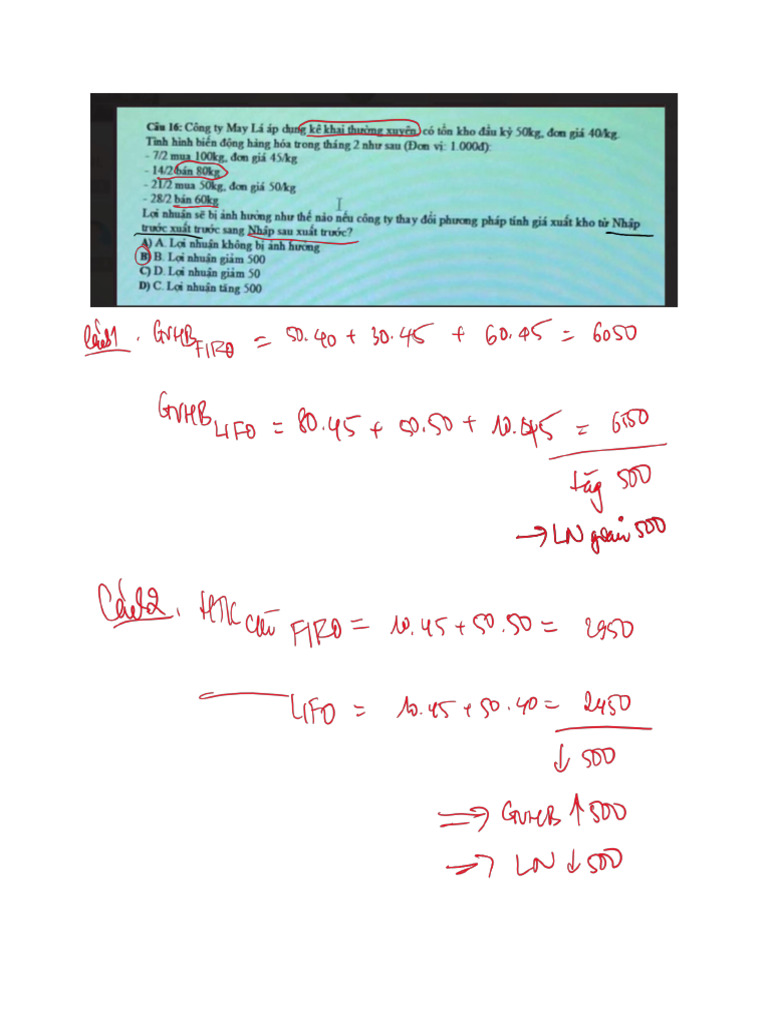 Câu 16: Công ty May Lá áp dụng kê khai thường xuyên có tồn kho đầu kỳ 50kg, đơn giá 40/kg.
Tình hình biến động hàng hóa trong tháng 2 như sau (Đơn vị: 1.000đ):
- 7/2 mua 100kg, đơn giá 45/kg
- 14/2 bán 80kg
- 21/2 mua 50kg, đơn giá 50/kg
- 28/2 bán 60kg
Lợi nhuận sẽ bị ảnh hưởng như thế nào nếu công ty thay đổi phương pháp tính giá xuất kho từ Nhập
trước xuất trước sang Nhập sau xuất trước?
A) A. Lợi nhuận không bị ảnh hưởng
B) B. Lợi nhuận giảm 500
C) D. Lợi nhuận giảm 50
D) C. Lợi nhuận tăng 500
Cách 1. GVHB FIFO = 50.40 + 30.45 + 60.45 = 6050
GVHB LIFO = 80.45 + 50.50 + 10.45 = 6550
tăng 500
→ LN giảm 500
Cách 2. HTK CK FIFO = 10.45 + 50.50 = 2950
LIFO = 10.45 + 50.40 = 2450
↓ 500
⇒ GVHB ↑ 500
→ LN ↓ 500